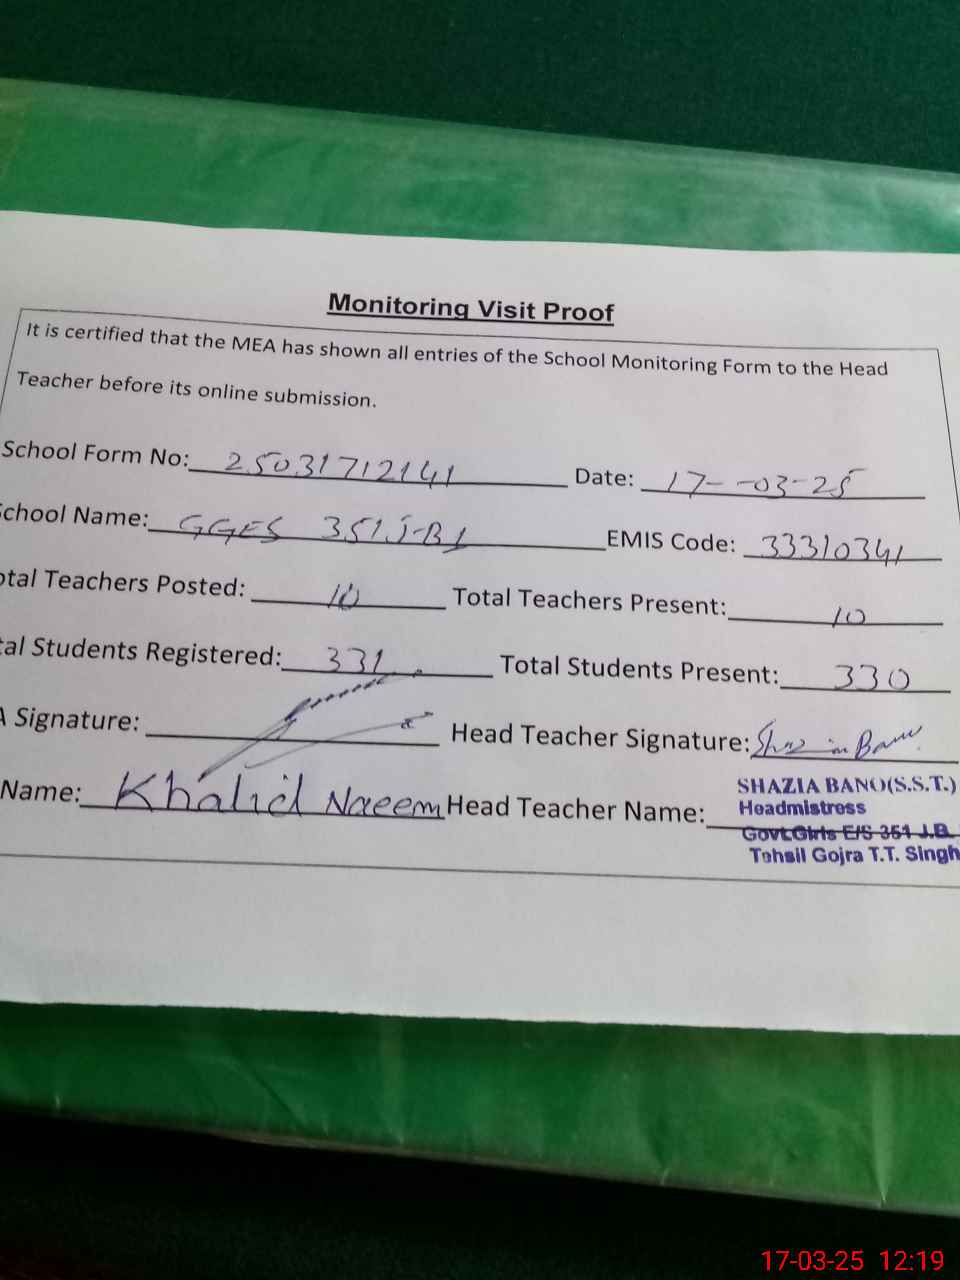 Monitoring Visit Proof
It is certified that the MEA has shown all entries of the School Monitoring Form to the Head
Teacher before its online submission.
School Form No: 25031712141 Date: 17--03-25
chool Name: GGES 351 J-B 1 EMIS Code: 33310341
otal Teachers Posted: 10 Total Teachers Present: 10
tal Students Registered: 331 Total Students Present: 330
A Signature: Head Teacher Signature: Shazia Bano
Name: Khalid Naeem Head Teacher Name: SHAZIA BANO(S.S.T.)
Headmistress
Govt.Girls E/S 351 J.B.
Tehsil Gojra T.T. Singh
17-03-25 12:19